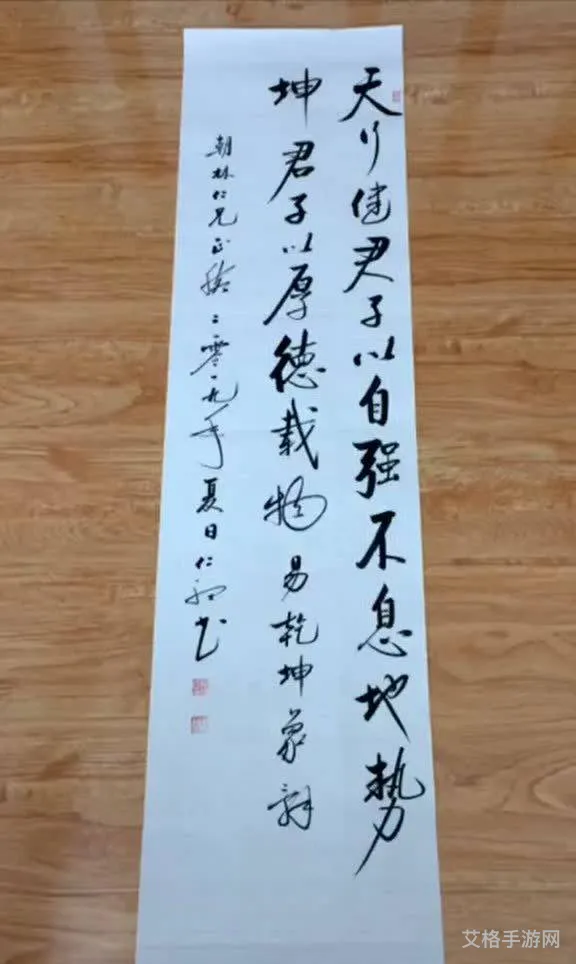 天行健君子以自强不息地势
坤君子以厚德载物易乾坤象辞
朝林仁兄正腕二零一九年夏日仁初书
艾格手游网